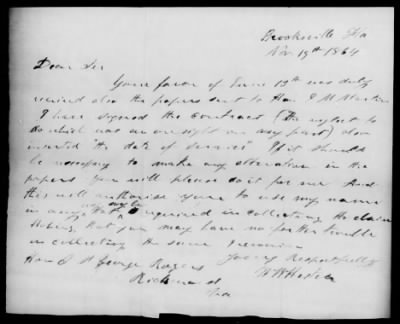 Brooksville Fla
Nov 19th 1864
Dear Sir
Your favor of 13th was duly
received also the papers sent to Hon. E M
I have signed the contract (the neglect to
do which was an oversight on my part) also
inserted "the date of service" If it should
be necessary to make any alteration in the
papers you will please do it for me And
this will authorize you to use my name
in any way required in collecting the claim
Hoping that you may have no further trouble
in collecting the same I remain
Yours Respectfully
Hon. St George Rogers
Richmond
Va